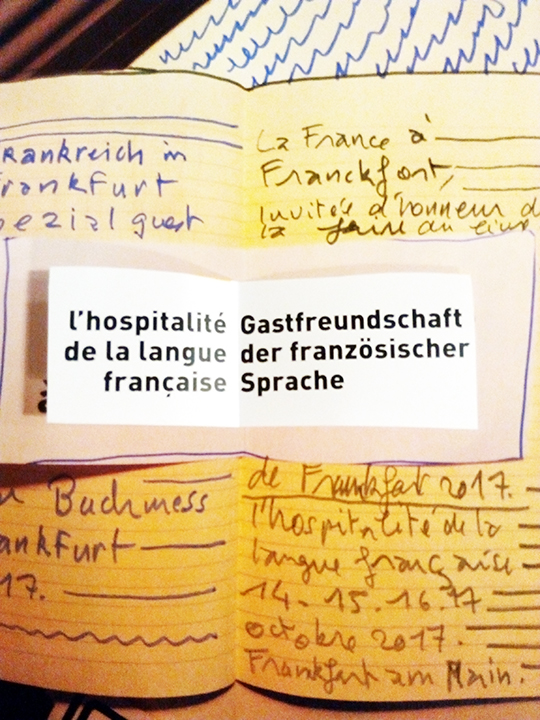 Rankreich in
Frankfurt
pezial guest
La France à
Franckfort,
Invitée d'honneur d
la foire au livre
l'hospitalité
de la langue
française
Gastfreundschaft
der französischer
Sprache
Buchmess
ankfurt
17.
de Frankfurt 2017.
l'hospitalité de la
langue française
14. 15. 16. 17
octobre 2017.
Frankfurt am Main.